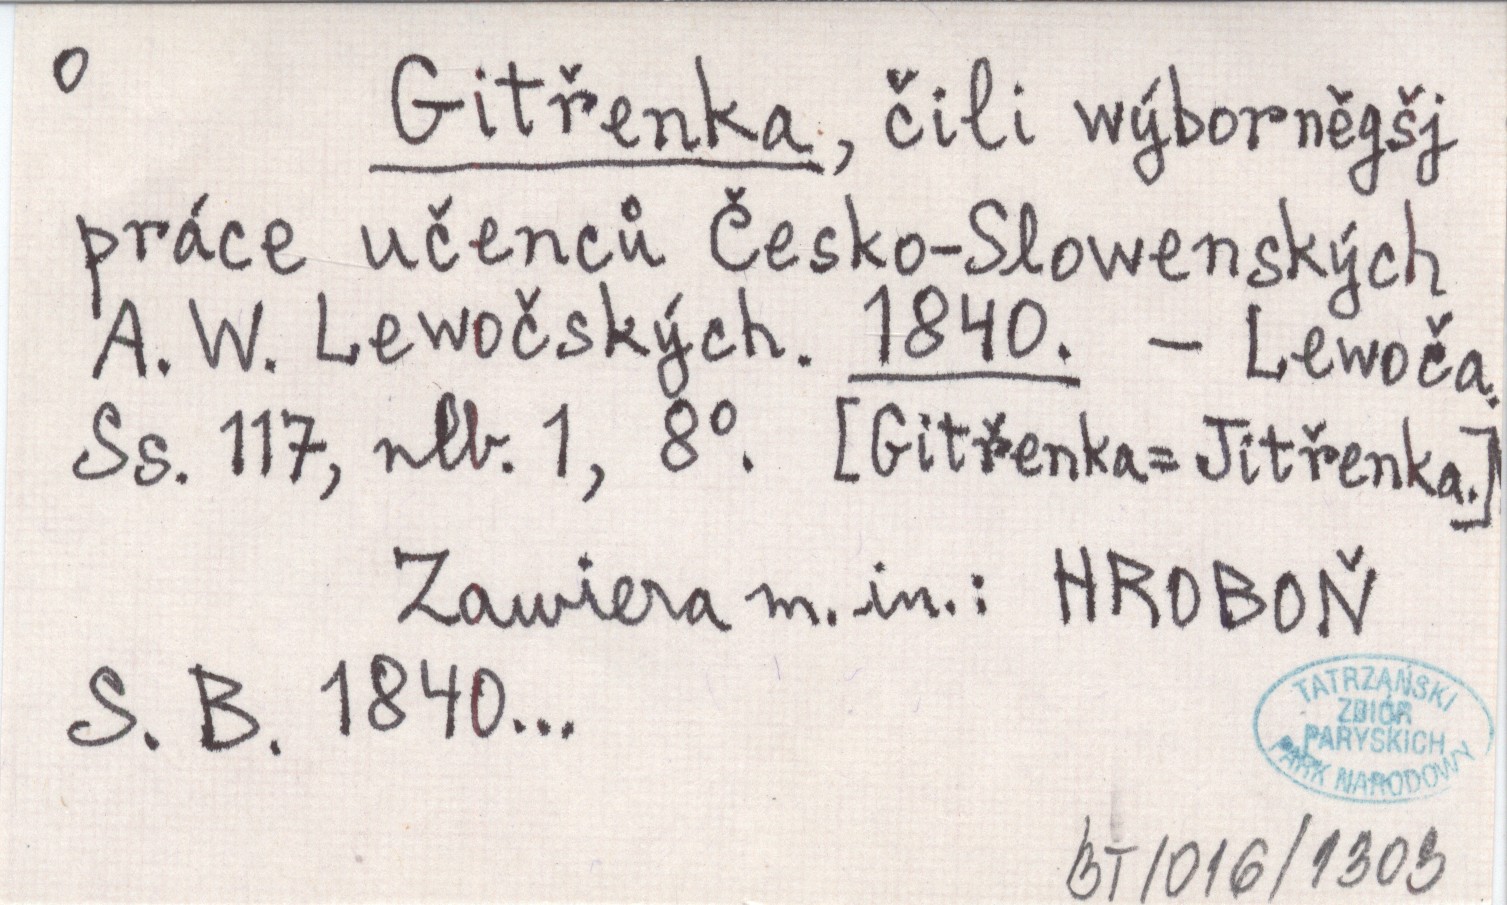 o Gitřenka, čili wýborněgšj
práce učenců Česko-Slowenských
A. W. Lewočských. 1840. – Lewoča.
Ss. 117, nlb. 1, 8º. [Gitřenka = Jitřenka.]
Zawiera m. in.: HROBOŇ
S. B. 1840...
TATRZAŃSKI
ZBIÓR
PARYSKICH
PARK NARODOWY
BT/016/1303